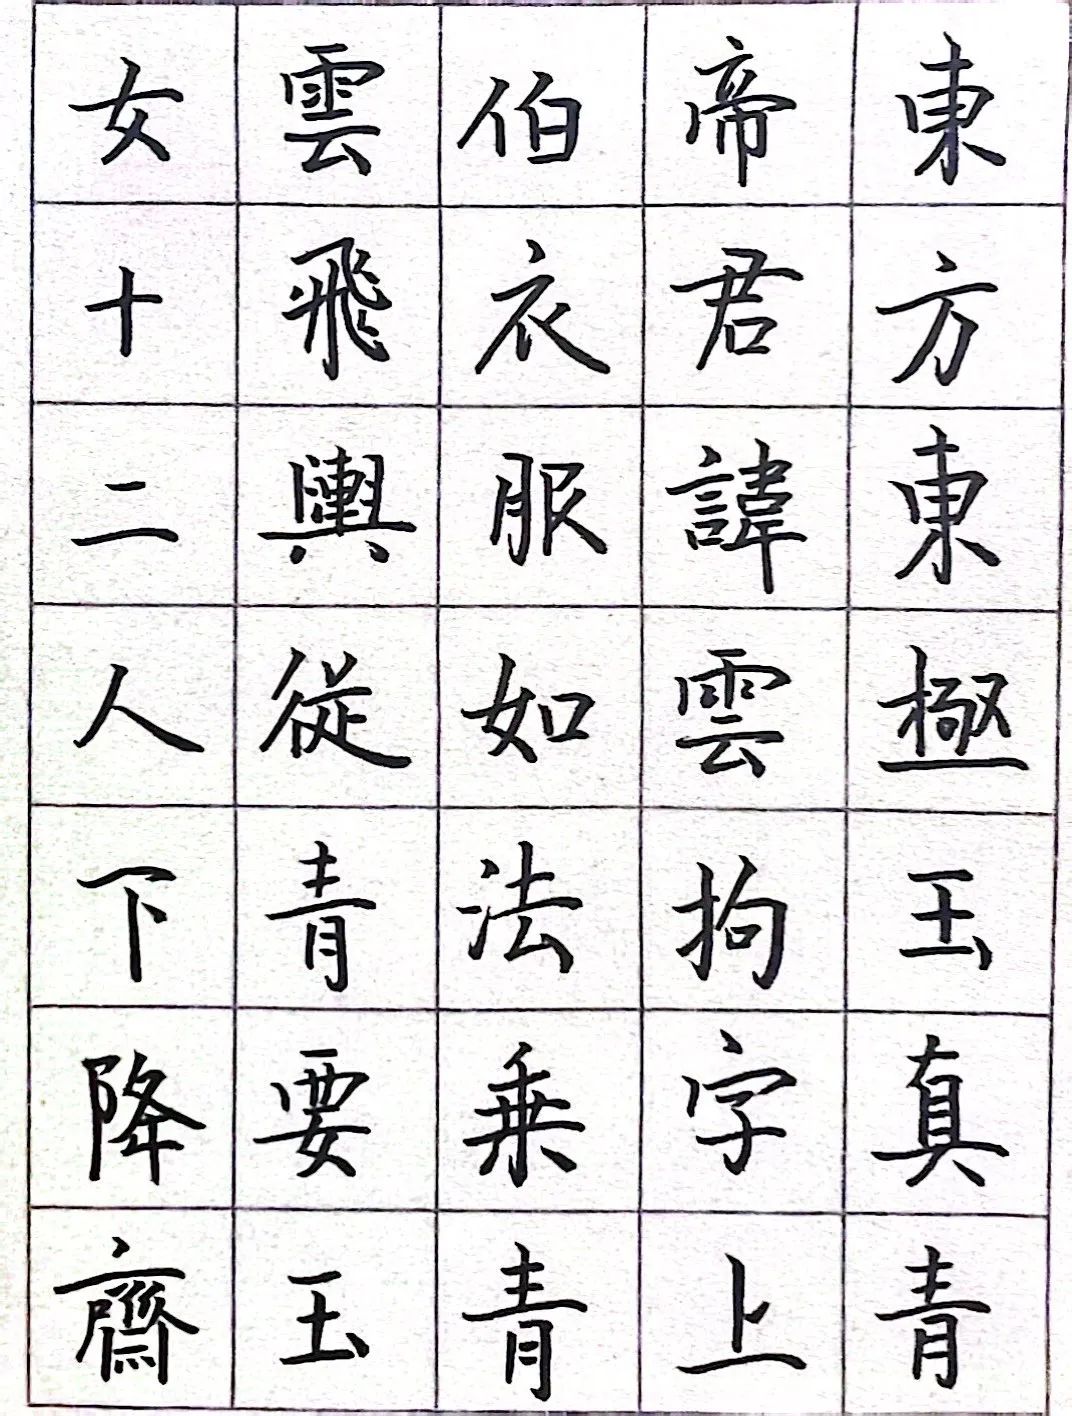 東方東極玉真青
帝君諱雲拘字上
伯衣服如法乗青
雲飛輿從青要玉
女十二人下降齋